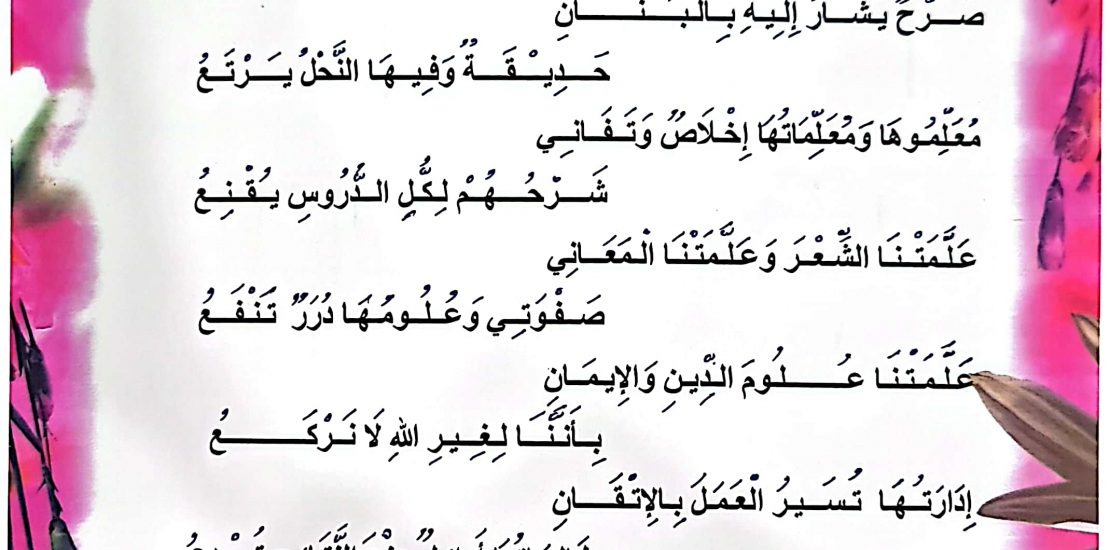 صَرْحٌ يُشَارُ إِلَيْهِ بِالْبَنَانِ
حَدِيْقَةٌ وَفِيهَا النَّحْلُ يَرْتَعُ
مُعَلِّمُوهَا وَمُعَلِّمَاتُهَا إِخْلَاصٌ وَتَفَانِي
شَرْحُهُمْ لِكُلِّ الدُّرُوسِ يُقْنِعُ
عَلَّمَتْنَا الشِّعْرَ وَعَلَّمَتْنَا الْمَعَانِي
صَفْوَتِي وَعُلُومُهَا دُرَرٌ تَنْفَعُ
عَلَّمَتْنَا عُلُومَ الدِّينِ وَالإِيمَانِ
بِأَنَّنَا لِغِيرِ اللهِ لَا نَرْكَعُ
إِدَارَتُهَا تُسَيرُ الْعَمَلَ بِالإِتْقَانِ